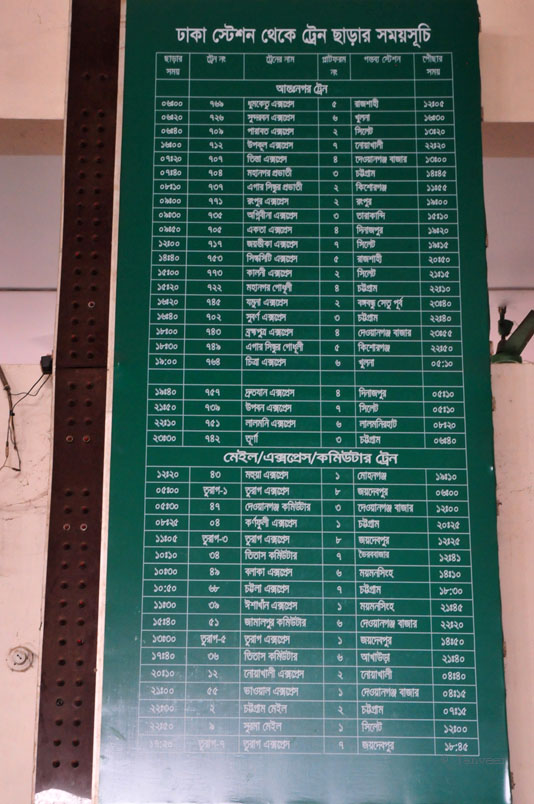 ঢাকা স্টেশন থেকে ট্রেন ছাড়ার সময়সূচি
ছাড়ার সময় ট্রেন নং ট্রেনের নাম প্লাটফরম নং গন্তব্য স্টেশন পৌছার সময়
আন্তঃনগর ট্রেন
০৬ঃ০০ ৭৬৯ ধুমকেতু এক্সপ্রেস ৫ রাজশাহী ১২ঃ০৫
০৬ঃ২০ ৭২৬ সুন্দরবন এক্সপ্রেস ৬ খুলনা ১৬ঃ৩০
০৬ঃ৪০ ৭০৯ পারাবত এক্সপ্রেস ২ সিলেট ১৩ঃ২০
১৬ঃ০০ ৭১২ উপকূল এক্সপ্রেস ৭ নোয়াখালী ২২ঃ২০
০৭ঃ২০ ৭০৭ তিস্তা এক্সপ্রেস ৪ দেওয়ানগঞ্জ বাজার ১৩ঃ০০
০৭ঃ৪০ ৭০৪ মহানগর প্রভাতী ৩ চট্টগ্রাম ১৪ঃ৪৫
০৮ঃ১০ ৭৩৭ এগার সিন্ধুর প্রভাতী ২ কিশোরগঞ্জ ১১ঃ৫৫
০৯ঃ০০ ৭৭১ রংপুর এক্সপ্রেস ২ রংপুর ১৯ঃ০০
০৯ঃ৩০ ৭৩৫ অগ্নিবীনা এক্সপ্রেস ৩ তারাকান্দি ১৫ঃ১০
০৯ঃ৫০ ৭০৫ একতা এক্সপ্রেস ৪ দিনাজপুর ১৯ঃ২০
১২ঃ০০ ৭১৭ জয়ন্তীকা এক্সপ্রেস ৭ সিলেট ১৯ঃ১৫
১৪ঃ৪০ ৭৫৩ সিল্কসিটি এক্সপ্রেস ৫ রাজশাহী ২০ঃ৫০
১৫ঃ০০ ৭৭৩ কালনী এক্সপ্রেস ২ সিলেট ২১ঃ১৫
১৫ঃ২০ ৭২২ মহানগর গোধূলী ৪ চট্টগ্রাম ২২ঃ১০
১৬ঃ২০ ৭৪৫ যমুনা এক্সপ্রেস ২ বঙ্গবন্ধু সেতু পূর্ব ২৩ঃ৪০
১৬ঃ৪০ ৭০২ সুবর্ণ এক্সপ্রেস ৩ চট্টগ্রাম ২২ঃ৪০
১৮ঃ০০ ৭৪৩ ব্রহ্মপুত্র এক্সপ্রেস ৪ দেওয়ানগঞ্জ বাজার ২৩ঃ৫৫
১৮ঃ৩০ ৭৪৯ এগার সিন্ধুর গোধূলী ৫ কিশোরগঞ্জ ২২ঃ৫০
১৯:০০ ৭৬৪ চিত্রা এক্সপ্রেস ৬ খুলনা ০৫:১০
১৯ঃ৪০ ৭৫৭ দ্রুতযান এক্সপ্রেস ৪ দিনাজপুর ০৫ঃ১০
২১ঃ৫০ ৭৩৯ উপবন এক্সপ্রেস ৭ সিলেট ০৫ঃ১০
২২ঃ১০ ৭৫১ লালমনি এক্সপ্রেস ৬ লালমনিরহাট ০৮ঃ২০
২৩ঃ৩০ ৭৪২ তূর্ণা ৩ চট্টগ্রাম ০৬ঃ৪০
মেইল/এক্সপ্রেস/কমিউটার ট্রেন
১২ঃ২০ ৪৩ মহুয়া এক্সপ্রেস ১ মোহনগঞ্জ ১৯ঃ১০
০৫ঃ০০ তুরাগ-১ তুরাগ এক্সপ্রেস ৮ জয়দেবপুর ০৬ঃ০০
০৫ঃ৩০ ৪৭ দেওয়ানগঞ্জ কমিউটার ৩ দেওয়ানগঞ্জ বাজার ১২ঃ০০
০৮ঃ২৫ ০৪ কর্ণফুলী এক্সপ্রেস ১ চট্টগ্রাম ২০ঃ২৫
১১ঃ০৫ তুরাগ-৩ তুরাগ এক্সপ্রেস ৮ জয়দেবপুর ১২ঃ২৫
১০ঃ১০ ৩৪ তিতাস কমিউটার ৭ ভৈরববাজার ১২ঃ৪১
১০ঃ৩০ ৪৯ বলাকা এক্সপ্রেস ৬ ময়মনসিংহ ১৪ঃ১০
১০:৫০ ৬৮ চট্টলা এক্সপ্রেস ৭ চট্টগ্রাম ১৮:৩০
১১ঃ৩০ ৩৯ ঈশাখাঁন এক্সপ্রেস ১ ময়মনসিংহ ২১ঃ৪৫
১৫ঃ৪০ ৫১ জামালপুর কমিউটার ৬ দেওয়ানগঞ্জ বাজার ২২ঃ২০
১৩ঃ৩০ তুরাগ-৫ তুরাগ এক্সপ্রেস ১ জয়দেবপুর ১৪ঃ৫০
১৭ঃ৪০ ৩৬ তিতাস কমিউটার ৬ আখাউড়া ২১ঃ৪০
২০ঃ১০ ১২ নোয়াখালী এক্সপ্রেস ২ নোয়াখালী ০৪ঃ৪০
২১ঃ০০ ৫৫ ভাওয়াল এক্সপ্রেস ১ দেওয়ানগঞ্জ বাজার ০৪ঃ১৫
২২ঃ৩০ ২ চট্টগ্রাম মেইল ২ চট্টগ্রাম ০৭ঃ১৫
২২ঃ৫০ ৯ সুরমা মেইল ১ সিলেট ১২ঃ০০
১৭ঃ২০ তুরাগ-৭ তুরাগ এক্সপ্রেস ৭ জয়দেবপুর ১৮ঃ৪৫